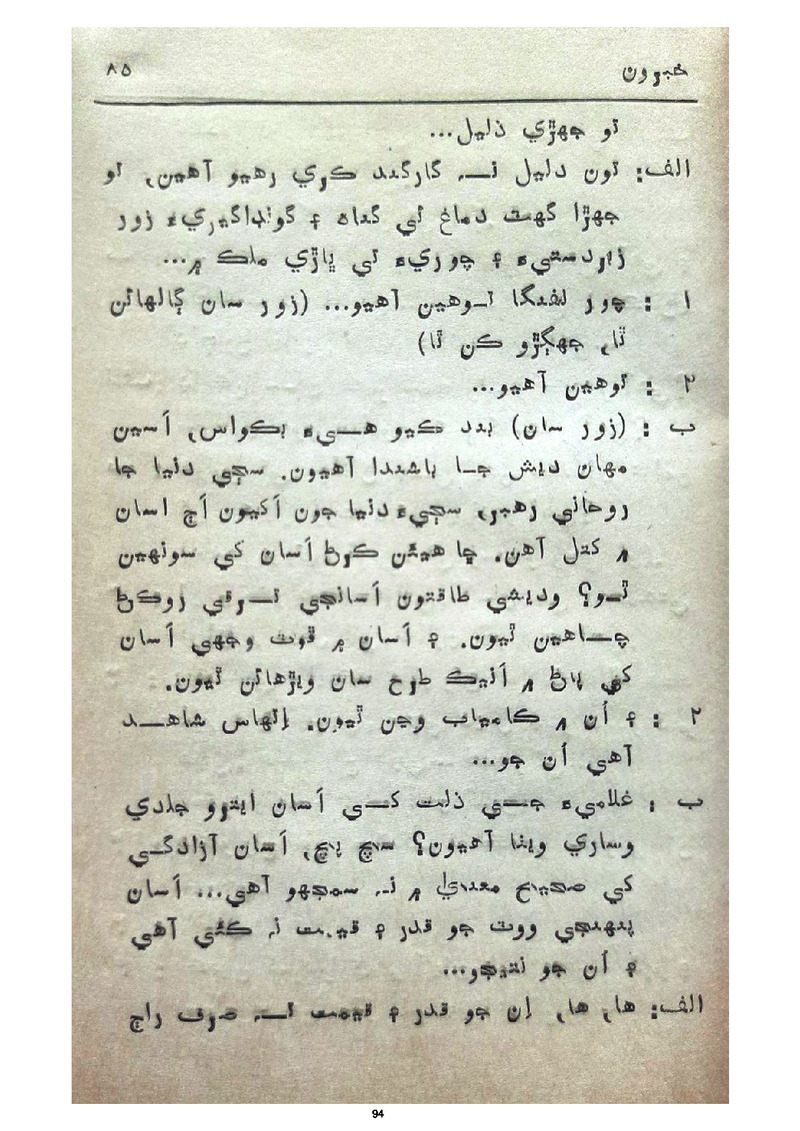 خبرون ۸۵
تو جهڙي ذليل...
الف: تون دليل نہ گارگند ڪري رهيو آهين، تو
جهڙا گهٽ دماغ ئي گناه ۽ گونڊاگيريءَ زور
زبردستيءَ ۽ چوريءَ تي ڀاڙي ملڪ ۾...
۱ : چور لفنگا توهين آهيو... (زور سان ڳالهائن
ٿا، جهڳڙو ڪن ٿا)
۲ : توهين آهيو...
ب : (زور سان) بند ڪيو هيءَ بڪواس، اَسين
مهان ديش جا باشندا آهيون. سڄي دنيا جا
روحاني رهبر، سڄيءَ دنيا جون اَکيون اَڄ اسان
۾ کتل آهن. ڇا هيئن ڪرڻ اَسان کي سونهين
ٿو؟ وديشي طاقتون اَسانجي ترقي روڪڻ
چاهين ٿيون. ۽ اَسان ۾ ڦوٽ وجهي اَسان
کي پاڻ ۾ اَنيڪ طرح سان ويڙهائن ٿيون.
۲ : ۽ اُن ۾ ڪامياب وڃن ٿيون. اِتهاس شاهد
آهي اُن جو...
ب : غلاميءَ جي ذلت کي اَسان ايترو جلدي
وساري ويٺا آهيون؟ سچ پچ، اَسان آزادگي
کي صحيح معنيٰ ۾ نہ سمجهو آهي... اَسان
پنهنجي ووٽ جو قدر ۽ قيمت نہ ڪئي آهي
۽ اُن جو نتيجو...
الف: ها، ها، اِن جو قدر ۽ قيمت تہ صرف راڄ
94